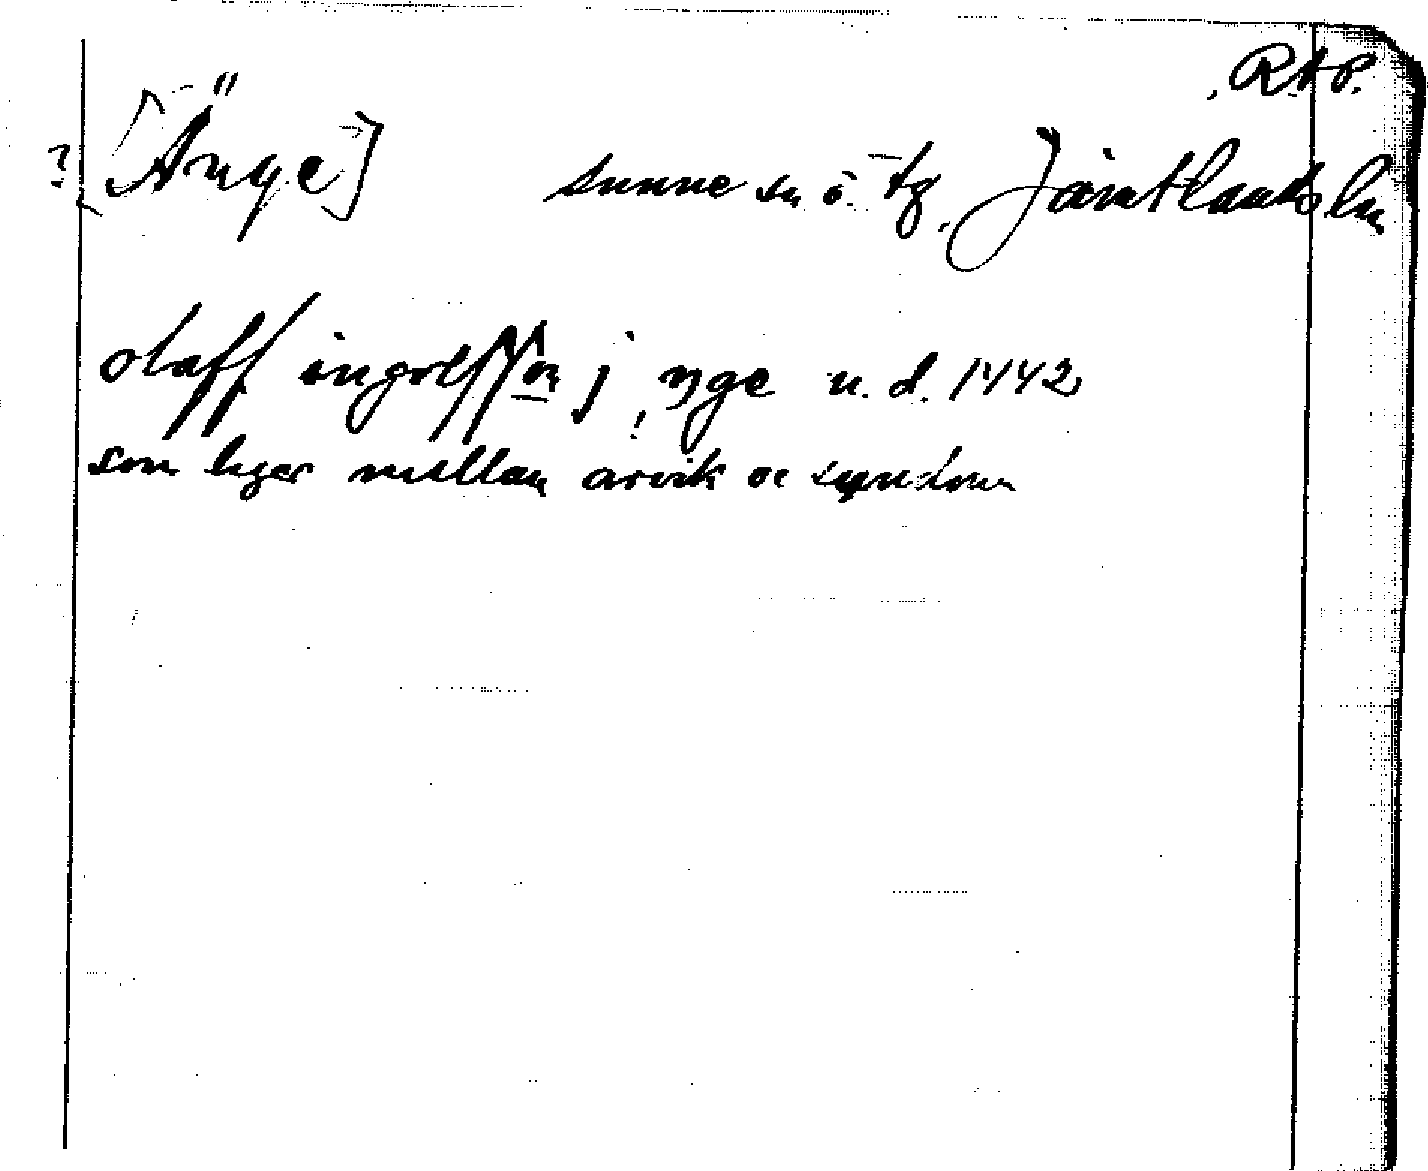 RAP.
? [Änge] Sunne sn ö. tg. Jämtlands ln
olaff ingolffson j ! ynge u. d. 1442
som liger mellan arvik oc